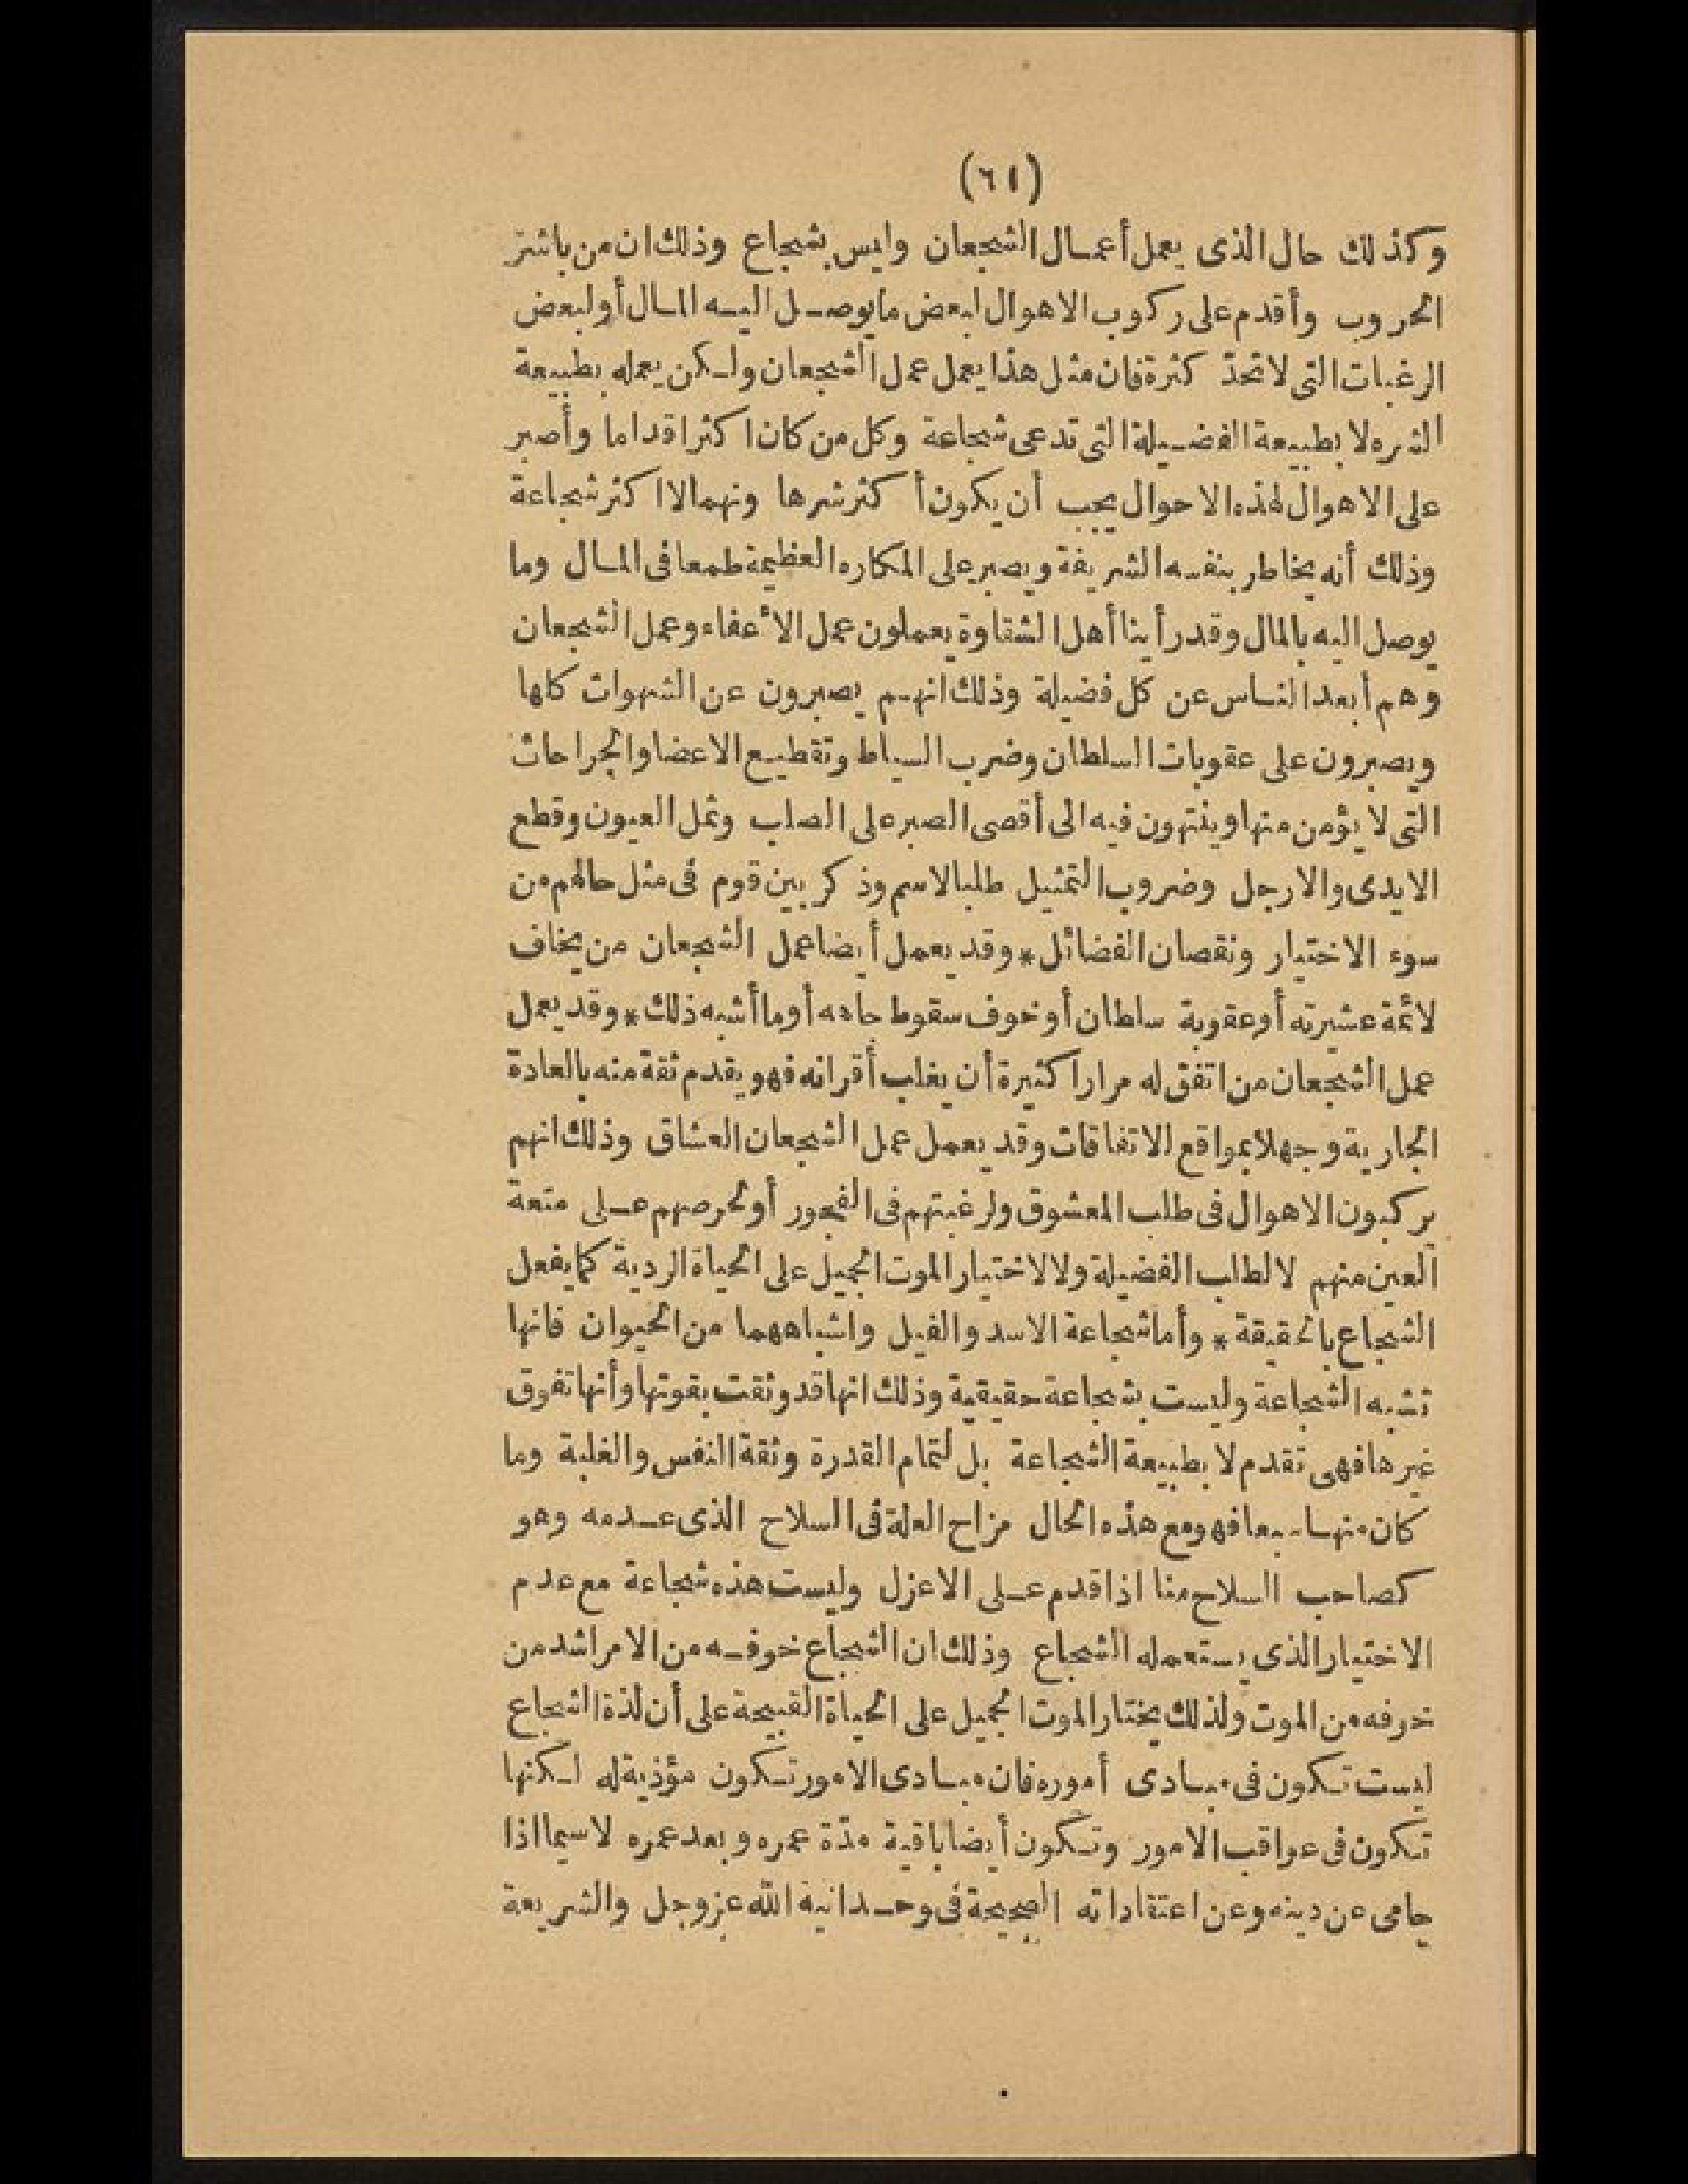 (٦١)
وكذلك حال الذى يعمل أعمال الشجعان وليس بشجاع وذلك ان من باشر
الحروب وأقدم على ركوب الاهوال لبعض ما يوصل اليه المال أو لبعض
الرغبات التى لا تحدّ كثرة فان مثل هذا يعمل عمل الشجعان ولكن يعمله بطبيعة
الشره لا بطبيعة الفضيلة التى تدعى شجاعة وكل من كان اكثر اقداما وأصبر
على الاهوال لهذه الاحوال يجب أن يكون أكثر شرها ونهما لا اكثر شجاعة
وذلك أنه يخاطر بنفسه الشريفة ويصبر على المكاره العظيمة طمعا فى المال وما
يوصل اليه بالمال وقد رأينا أهل الشقاوة يعملون عمل الأعفاء وعمل الشجعان
وهم أبعد الناس عن كل فضيلة وذلك انهم يصبرون عن الشهوات كلها
ويصبرون على عقوبات السلطان وضرب السياط وتقطيع الاعضا والجراحات
التى لا يؤمن منها وينتهون فيه الى أقصى الصبر على الصلب وثمل العيون وقطع
الايدى والارجل وضروب التمثيل طلبا لاسم وذكر بين قوم فى مثل حالهم من
سوء الاختيار ونقصان الفضائل * وقد يعمل أيضا عمل الشجعان من يخاف
لائمة عشيرته أو عقوبة سلطان أو خوف سقوط جاهه أو ما أشبه ذلك * وقد يعمل
عمل الشجعان من اتفق له مرارا كثيرة أن يغلب أقرانه فهو يقدم ثقة منه بالعادة
الجارية وجهلا بمواقع الاتفاقات وقد يعمل عمل الشجعان العشاق وذلك انهم
يركبون الاهوال فى طلب المعشوق ولرغبتهم فى الفجور أو لحرصهم على متعة
العين منهم لا لطلب الفضيلة ولا لاختيار الموت الجميل على الحياة الردية كما يفعل
الشجاع بالحقيقة * وأما شجاعة الاسد والفيل واشباههما من الحيوان فانها
تشبه الشجاعة وليست بشجاعة حقيقية وذلك انها قد وثقت بقوتها وأنها تفوق
غيرها فهى تقدم لا بطبيعة الشجاعة بل لتمام القدرة وثقة النفس والغلبة وما
كان منها سبعا فهو مع هذه الحال مزاح العلة فى السلاح الذى عدمه وهو
كصاحب السلاح منا اذا قدم على الاعزل وليست هذه شجاعة مع عدم
الاختيار الذى يستعمله الشجاع وذلك ان الشجاع خوفه من الامر اشد من
خوفه من الموت ولذلك يختار الموت الجميل على الحياة القبيحة على أن لذة الشجاع
ليست تكون فى مبادى أموره فان مبادى الامور تكون مؤذية له لكنها
تكون فى عواقب الامور وتكون أيضا باقية مدّة عمره وبعد عمره لا سيما اذا
حامى عن دينه وعن اعتقاداته الصحيحة فى وحدانية الله عز وجل والشريعة